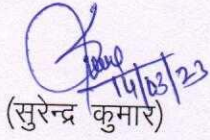 14/03/23
(सुरेन्द्र कुमार)